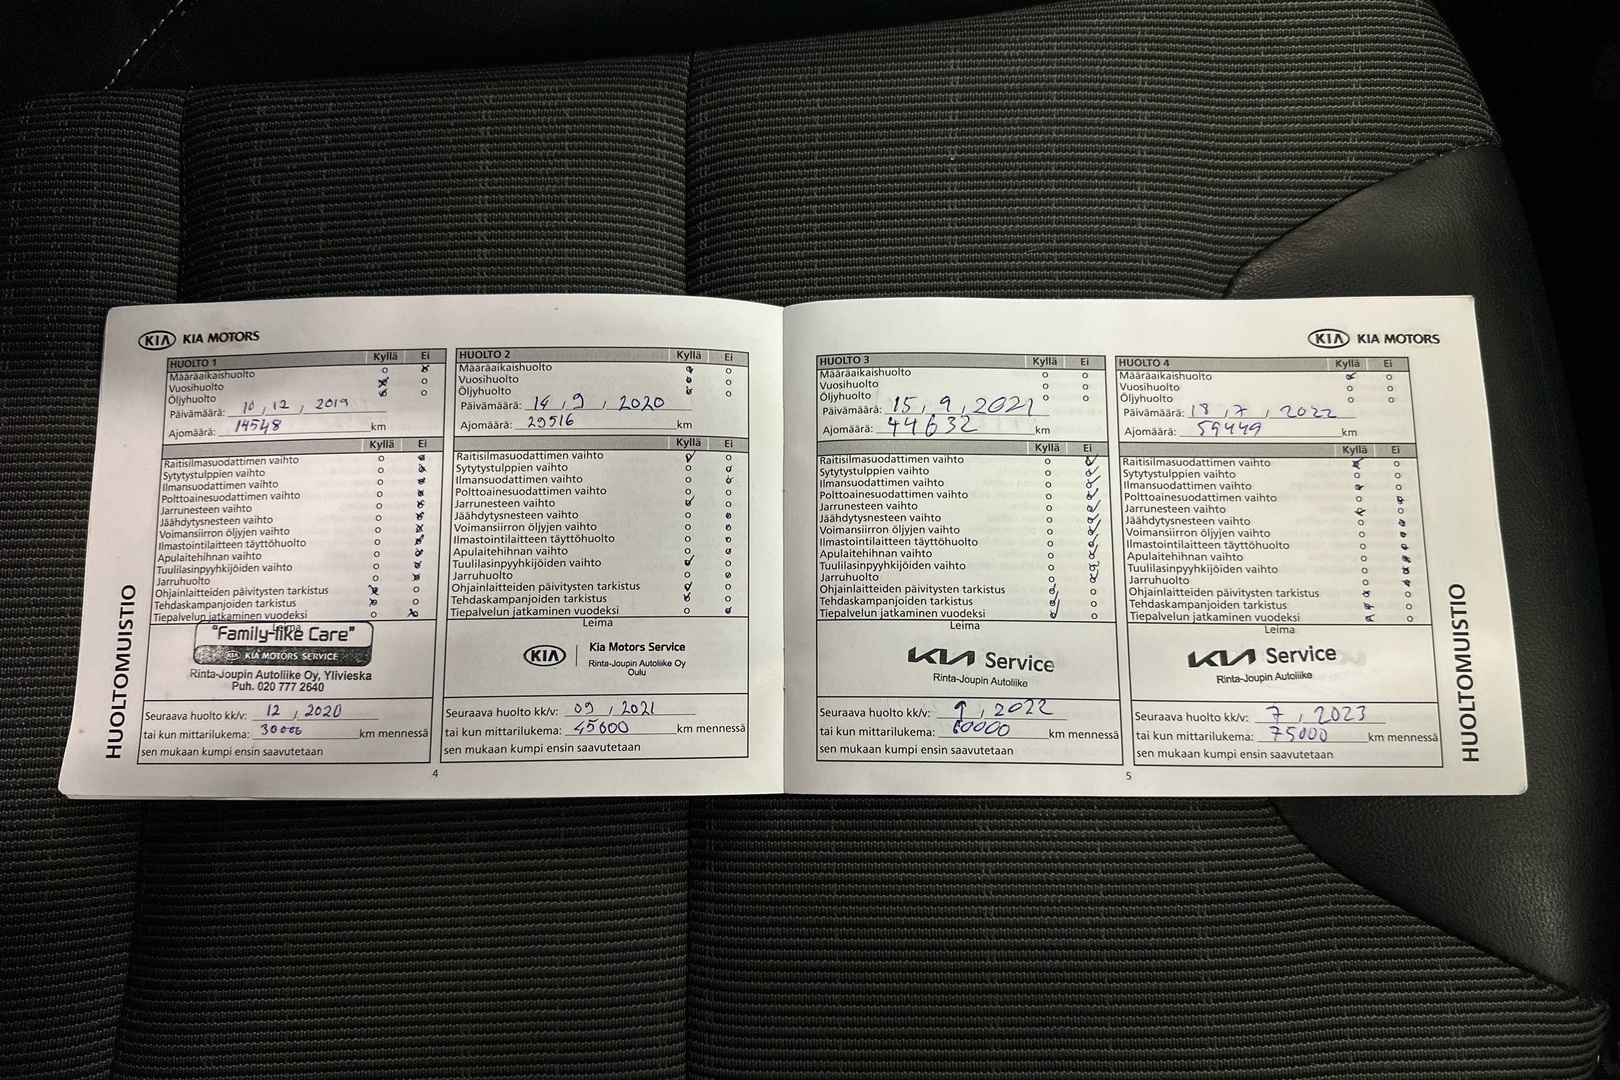 KIA KIA MOTORS
HUOLTO 1 Kyllä Ei
Määräaikaishuolto
Vuosihuolto
Öljyhuolto
Päivämäärä: 10 , 12 , 2019
Ajomäärä: 14548 km
Kyllä Ei
Raitisilmasuodattimen vaihto
Sytytystulppien vaihto
Ilmansuodattimen vaihto
Polttoainesuodattimen vaihto
Jarrunesteen vaihto
Jäähdytysnesteen vaihto
Voimansiirron öljyjen vaihto
Ilmastointilaitteen täyttöhuolto
Apulaitehihnan vaihto
Tuulilasinpyyhkijöiden vaihto
Jarruhuolto
Ohjainlaitteiden päivitysten tarkistus
Tehdaskampanjoiden tarkistus
Tiepalvelun jatkaminen vuodeksi
Leima
"Family-like Care"
KIA KIA MOTORS SERVICE
Rinta-Joupin Autoliike Oy, Ylivieska
Puh. 020 777 2640
Seuraava huolto kk/v: 12 , 2020
tai kun mittarilukema: 30000 km mennessä
sen mukaan kumpi ensin saavutetaan
HUOLTOMUISTIO
HUOLTO 2 Kyllä Ei
Määräaikaishuolto
Vuosihuolto
Öljyhuolto
Päivämäärä: 14 , 9 , 2020
Ajomäärä: 29516 km
Kyllä Ei
Raitisilmasuodattimen vaihto
Sytytystulppien vaihto
Ilmansuodattimen vaihto
Polttoainesuodattimen vaihto
Jarrunesteen vaihto
Jäähdytysnesteen vaihto
Voimansiirron öljyjen vaihto
Ilmastointilaitteen täyttöhuolto
Apulaitehihnan vaihto
Tuulilasinpyyhkijöiden vaihto
Jarruhuolto
Ohjainlaitteiden päivitysten tarkistus
Tehdaskampanjoiden tarkistus
Tiepalvelun jatkaminen vuodeksi
Leima
KIA Kia Motors Service
Rinta-Joupin Autoliike Oy
Oulu
Seuraava huolto kk/v: 09 , 2021
tai kun mittarilukema: 45000 km mennessä
sen mukaan kumpi ensin saavutetaan
4
KIA KIA MOTORS
HUOLTO 3 Kyllä Ei
Määräaikaishuolto
Vuosihuolto
Öljyhuolto
Päivämäärä: 15 , 9 , 2021
Ajomäärä: 44632 km
Kyllä Ei
Raitisilmasuodattimen vaihto
Sytytystulppien vaihto
Ilmansuodattimen vaihto
Polttoainesuodattimen vaihto
Jarrunesteen vaihto
Jäähdytysnesteen vaihto
Voimansiirron öljyjen vaihto
Ilmastointilaitteen täyttöhuolto
Apulaitehihnan vaihto
Tuulilasinpyyhkijöiden vaihto
Jarruhuolto
Ohjainlaitteiden päivitysten tarkistus
Tehdaskampanjoiden tarkistus
Tiepalvelun jatkaminen vuodeksi
Leima
KIA Service
Rinta-Joupin Autoliike
Seuraava huolto kk/v: 9 , 2022
tai kun mittarilukema: 60000 km mennessä
sen mukaan kumpi ensin saavutetaan
HUOLTO 4 Kyllä Ei
Määräaikaishuolto
Vuosihuolto
Öljyhuolto
Päivämäärä: 18 , 7 , 2022
Ajomäärä: 59449 km
Kyllä Ei
Raitisilmasuodattimen vaihto
Sytytystulppien vaihto
Ilmansuodattimen vaihto
Polttoainesuodattimen vaihto
Jarrunesteen vaihto
Jäähdytysnesteen vaihto
Voimansiirron öljyjen vaihto
Ilmastointilaitteen täyttöhuolto
Apulaitehihnan vaihto
Tuulilasinpyyhkijöiden vaihto
Jarruhuolto
Ohjainlaitteiden päivitysten tarkistus
Tehdaskampanjoiden tarkistus
Tiepalvelun jatkaminen vuodeksi
Leima
KIA Service
Rinta-Joupin Autoliike
Seuraava huolto kk/v: 7 , 2023
tai kun mittarilukema: 75000 km mennessä
sen mukaan kumpi ensin saavutetaan
5
HUOLTOMUISTIO